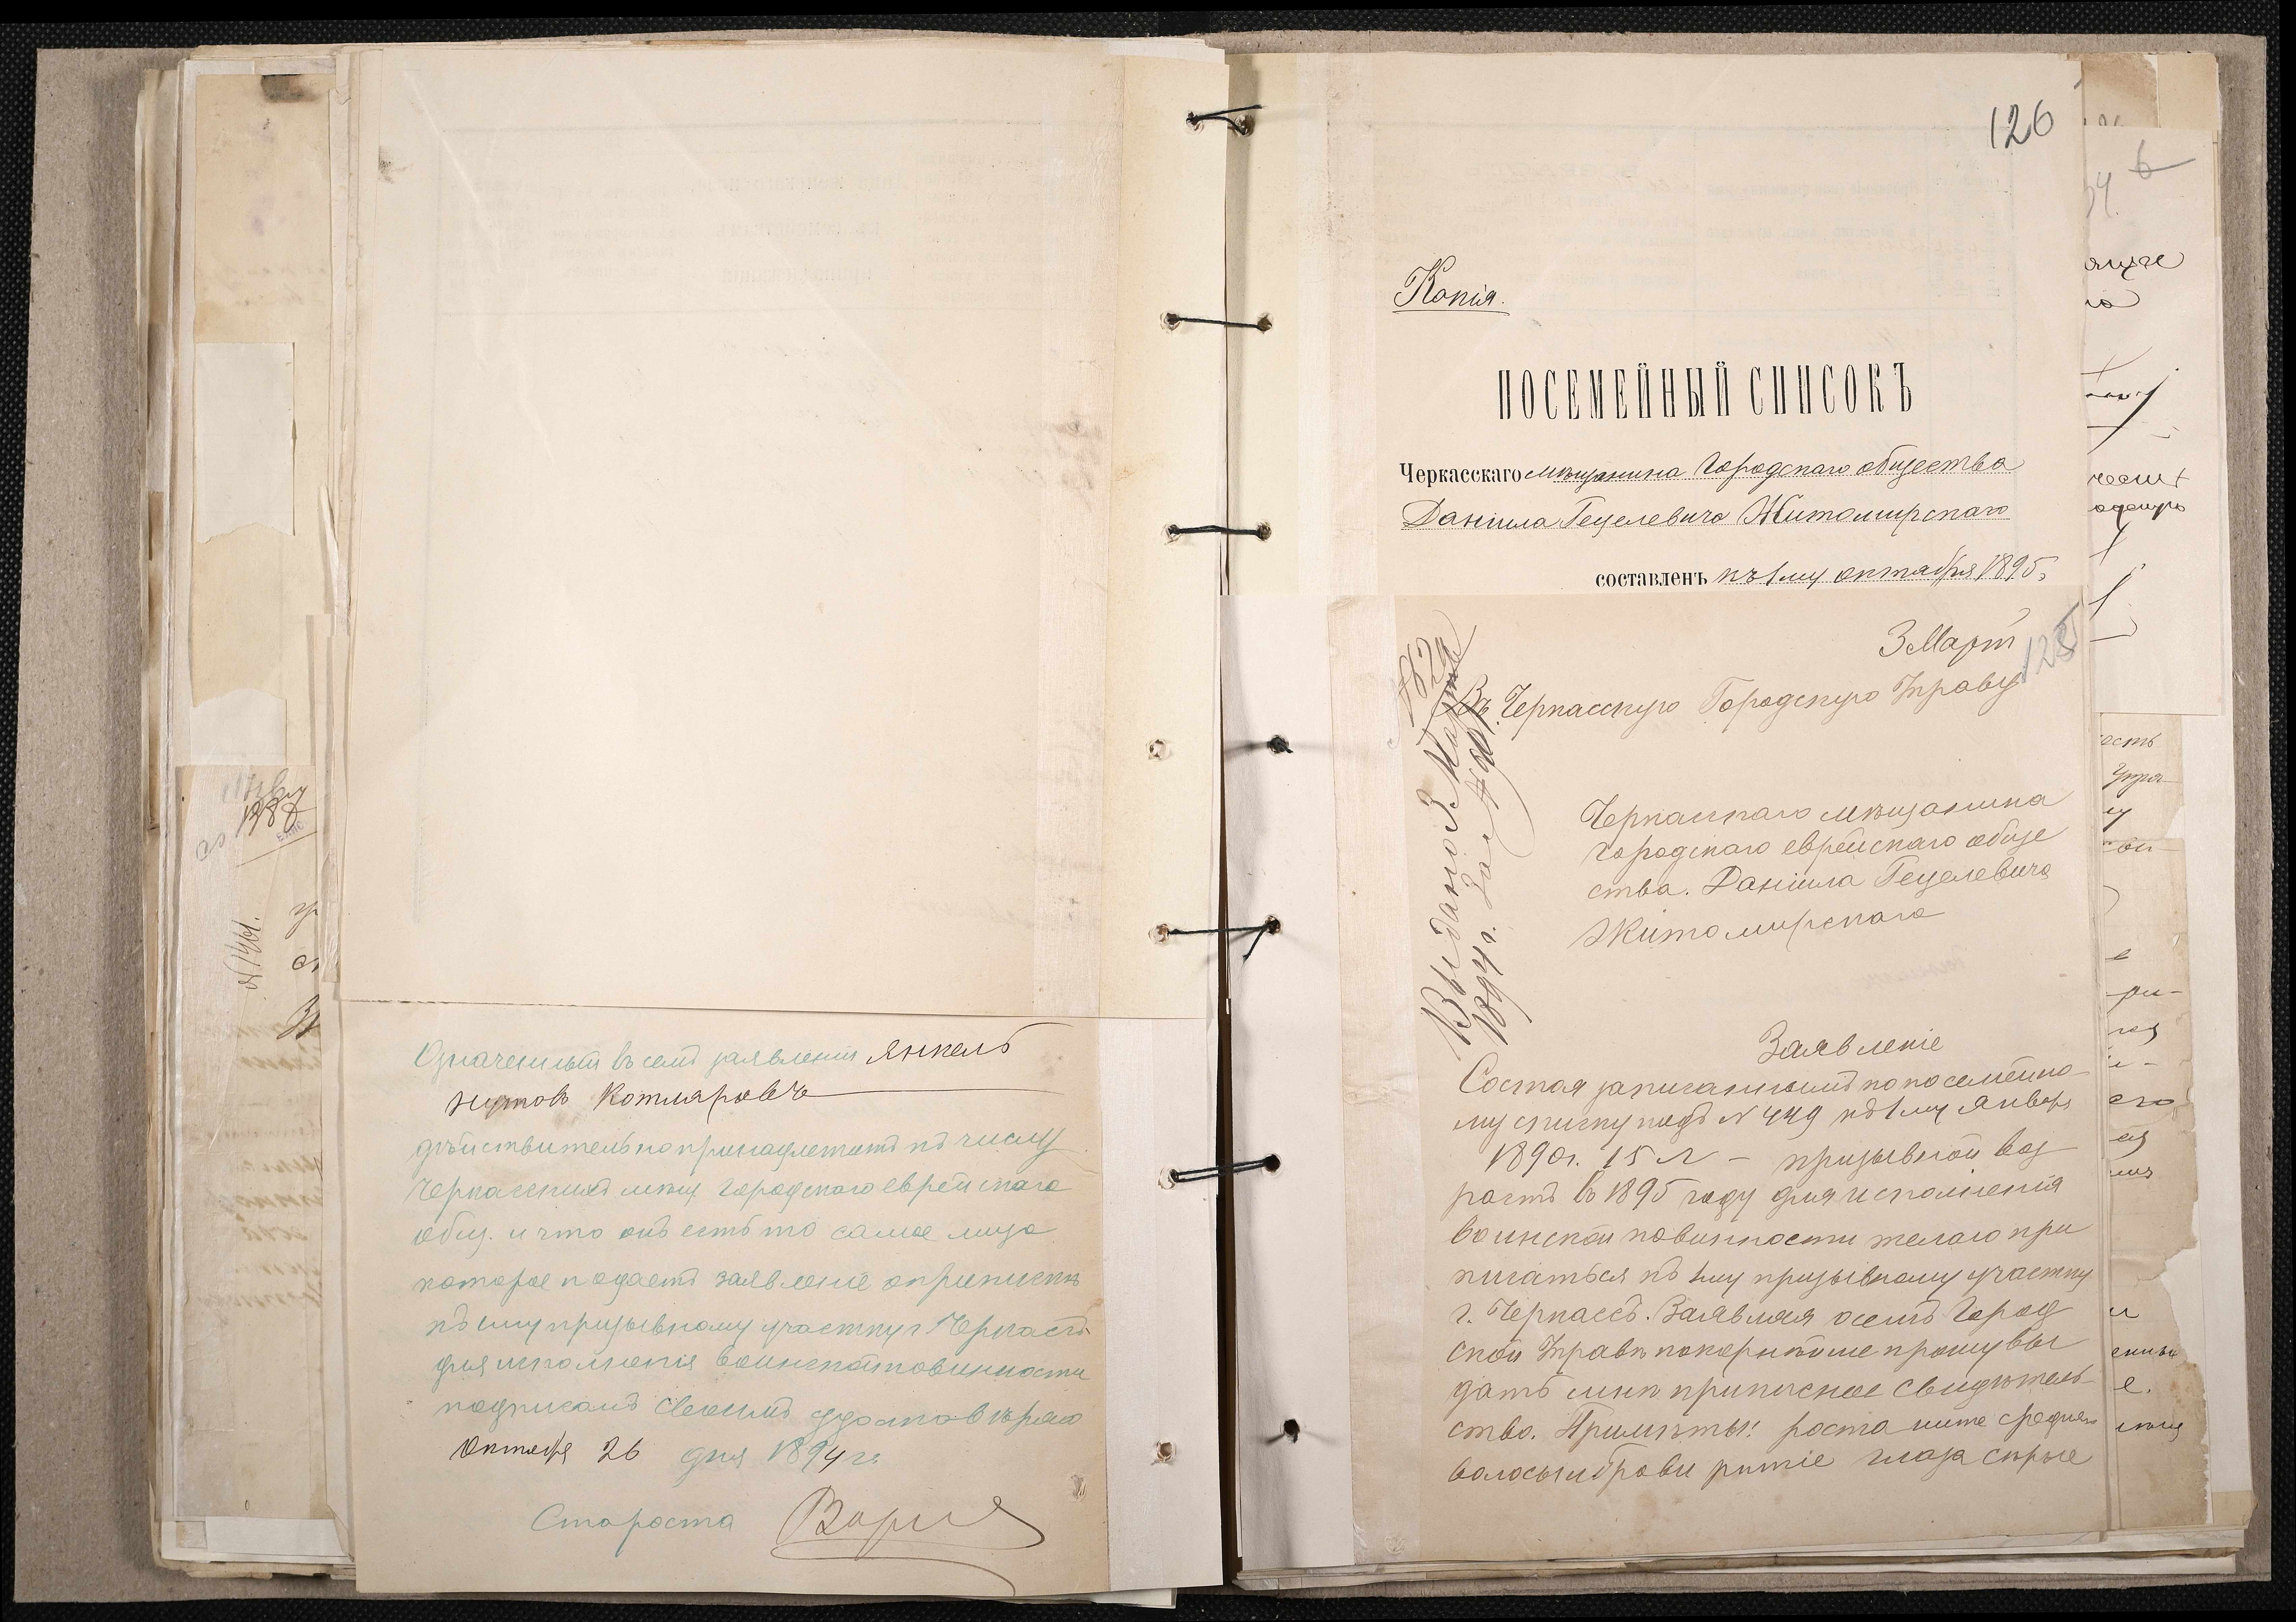 Означенный въ семъ заявленіи Янкель
Нутовъ Котляровъ
дѣйствительно принадлежитъ къ числу
Черкасскихъ мѣщ. городского еврейскаго
общ. и что онъ есть то самое лицо
которое подаетъ заявленіе о припискѣ
къ 1му призывному участку г. Черкассъ
для исполненія воинской повинности
подписомъ своимъ удостовѣряю
Октября 26 дня 1894 г.
Староста
№1461.
126
Копія.
ПОСЕМЕЙНЫЙ СПИСОКЪ
Черкасскаго мѣщанина Городскаго общества
Даніила Гецелевича Житомирскаго
составленъ къ 1му октября 1895
3 Март
125
Въ Черкасскую Городскую Управу
Выдано 3 Марта
1894 г. За №
Черкасскаго мѣщанина
городскаго еврейскаго обще
ства. Даніила Гецелевича
Житомирскаго
Заявленіе
Состоя записаннымъ по посемейно
му списку подъ № 449 къ 1му Января
1890 г. 15 л – призывной воз
растъ въ 1895 году для исполненія
воинской повинности желаю при
писаться къ 1му призывному участку
г. Черкассъ. Заявляя о семъ Город
ской Управѣ покорнѣйше прошу вы
дать мнѣ приписное свидѣтель
ство. Примѣты: роста ниже средняго
волосы и брови рыжіе глаза сѣрые